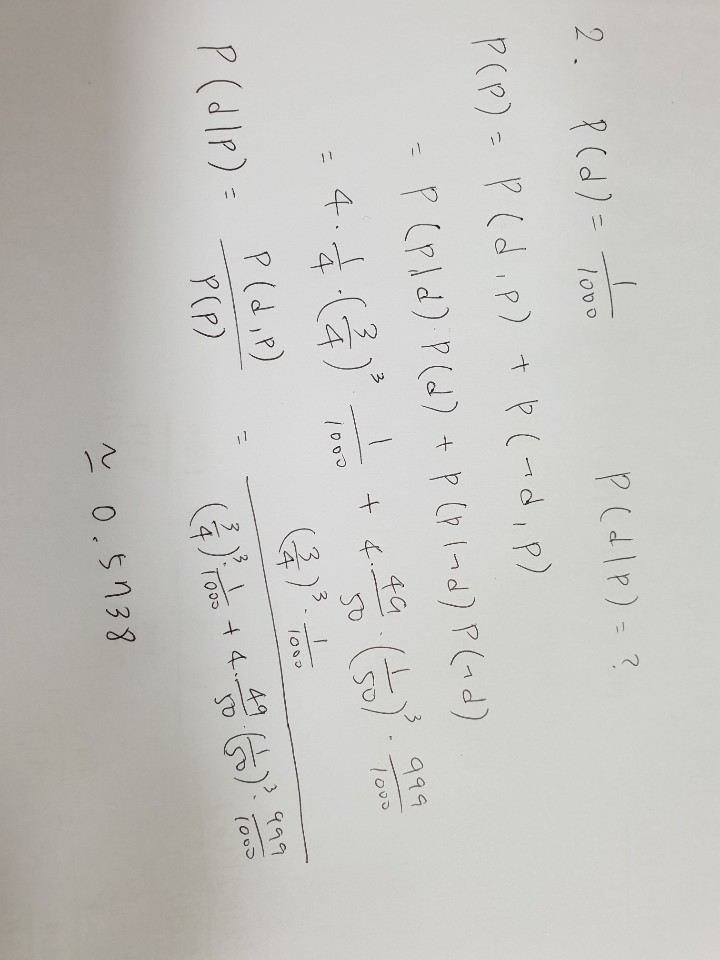 2. P(d) = 1/1000 P(d|p) = ?
P(p) = P(d,p) + P(¬d,p)
= P(p|d)·P(d) + P(p|¬d)P(¬d)
= 4·1/4·(3/4)³ 1/1000 + 4·49/50·(1/50)³·999/1000
P(d|p) = P(d,p)/P(p) = (3/4)³·1/1000 / (3/4)³·1/1000 + 4·49/50·(1/50)³·999/1000
≃ 0.5738